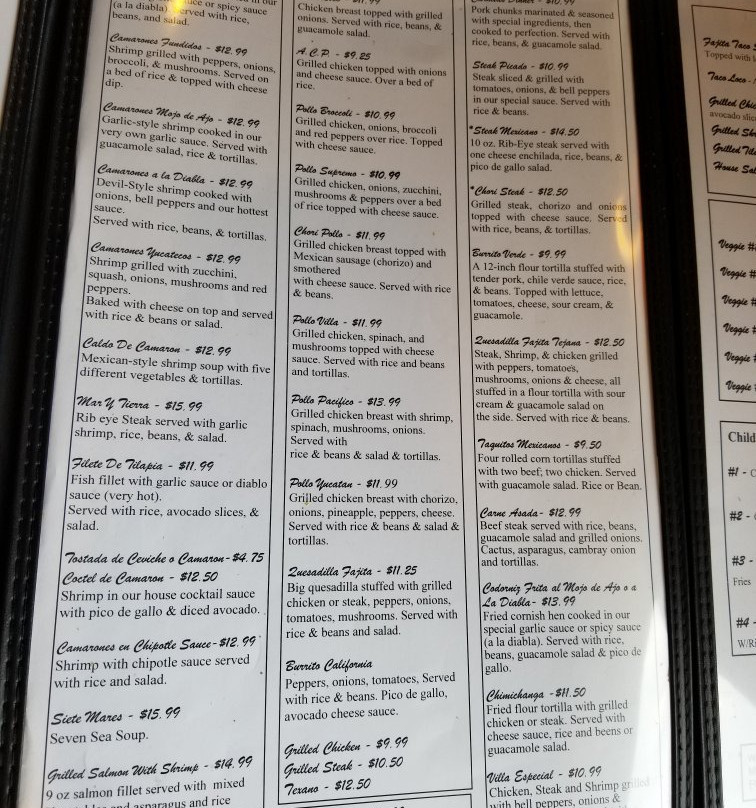 (a la diabla) served with rice,
beans, and salad.
Camarones Fundidos - $12.99
Shrimp grilled with peppers, onions,
broccoli, & mushrooms. Served on
a bed of rice & topped with cheese
dip.
Camarones Mojo de Ajo - $12.99
Garlic-style shrimp cooked in our
very own garlic sauce. Served with
guacamole salad, rice & tortillas.
Camarones a la Diabla - $12.99
Devil-Style shrimp cooked with
onions, bell peppers and our hottest
sauce.
Served with rice, beans, & tortillas.
Camarones Yucatecos - $12.99
Shrimp grilled with zucchini,
squash, onions, mushrooms and red
peppers.
Baked with cheese on top and served
with rice & beans or salad.
Caldo De Camaron - $12.99
Mexican-style shrimp soup with five
different vegetables & tortillas.
Mar Y Tierra - $15.99
Rib eye Steak served with garlic
shrimp, rice, beans, & salad.
Filete De Tilapia - $11.99
Fish fillet with garlic sauce or diablo
sauce (very hot).
Served with rice, avocado slices, &
salad.
Tostada de Ceviche o Camaron-$4.75
Coctel de Camaron - $12.50
Shrimp in our house cocktail sauce
with pico de gallo & diced avocado.
Camarones en Chipotle Sauce-$12.99
Shrimp with chipotle sauce served
with rice and salad.
Siete Mares - $15.99
Seven Sea Soup.
Grilled Salmon With Shrimp - $14.99
9 oz salmon fillet served with mixed
asparagus and rice
Chicken breast topped with grilled
onions. Served with rice, beans, &
guacamole salad.
A.C.P. - $9.25
Grilled chicken topped with onions
and cheese sauce. Over a bed of
rice.
Pollo Broccoli - $10.99
Grilled chicken, onions, broccoli
and red peppers over rice. Topped
with cheese sauce.
Pollo Supremo - $10.99
Grilled chicken, onions, zucchini,
mushrooms & peppers over a bed
of rice topped with cheese sauce.
Chori Pollo - $11.99
Grilled chicken breast topped with
Mexican sausage (chorizo) and
smothered
with cheese sauce. Served with rice
& beans.
Pollo Villa - $11.99
Grilled chicken, spinach, and
mushrooms topped with cheese
sauce. Served with rice and beans
and tortillas.
Pollo Pacifico - $13.99
Grilled chicken breast with shrimp,
spinach, mushrooms, onions.
Served with
rice & beans & salad & tortillas.
Pollo Yucatan - $11.99
Grilled chicken breast with chorizo,
onions, pineapple, peppers, cheese.
Served with rice & beans & salad &
tortillas.
Quesadilla Fajita - $11.25
Big quesadilla stuffed with grilled
chicken or steak, peppers, onions,
tomatoes, mushrooms. Served with
rice & beans and salad.
Burrito California
Peppers, onions, tomatoes, Served
with rice & beans. Pico de gallo,
avocado cheese sauce.
Grilled Chicken - $9.99
Grilled Steak - $10.50
Texano - $12.50
Pork chunks marinated & seasoned
with special ingredients, then
cooked to perfection. Served with
rice, beans, & guacamole salad.
Steak Picado - $10.99
Steak sliced & grilled with
tomatoes, onions, & bell peppers
in our special sauce. Served with
rice & beans.
*Steak Mexicano - $14.50
10 oz. Rib-Eye steak served with
one cheese enchilada, rice, beans, &
pico de gallo salad.
*Chori Steak - $12.50
Grilled steak, chorizo and onions
topped with cheese sauce. Served
with rice, beans, & tortillas.
Burrito Verde - $9.99
A 12-inch flour tortilla stuffed with
tender pork, chile verde sauce, rice,
& beans. Topped with lettuce,
tomatoes, cheese, sour cream, &
guacamole.
Quesadilla Fajita Tejana - $12.50
Steak, Shrimp, & chicken grilled
with peppers, tomatoes,
mushrooms, onions & cheese, all
stuffed in a flour tortilla with sour
cream & guacamole salad on
the side. Served with rice & beans.
Taquitos Mexicanos - $9.50
Four rolled corn tortillas stuffed
with two beef; two chicken. Served
with guacamole salad. Rice or Bean.
Carne Asada- $12.99
Beef steak served with rice, beans,
guacamole salad and grilled onions.
Cactus, asparagus, cambray onion
and tortillas.
Codorniz Frita al Mojo de Ajo o a
La Diabla- $13.99
Fried cornish hen cooked in our
special garlic sauce or spicy sauce
(a la diabla). Served with rice,
beans, guacamole salad & pico de
gallo.
Chimichanga - $11.50
Fried flour tortilla with grilled
chicken or steak. Served with
cheese sauce, rice and beens or
guacamole salad.
Villa Especial - $10.99
Chicken, Steak and Shrimp grilled
with bell peppers, onions &
Fajita Taco
Topped with
Taco Loco -
Grilled
avocado
Grilled
Grilled
House
Veggie #
Veggie #
Veggie #
Veggie #
Veggie #
Veggie #
Child
#1 -
#2 -
#3 -
Fries
#4 -